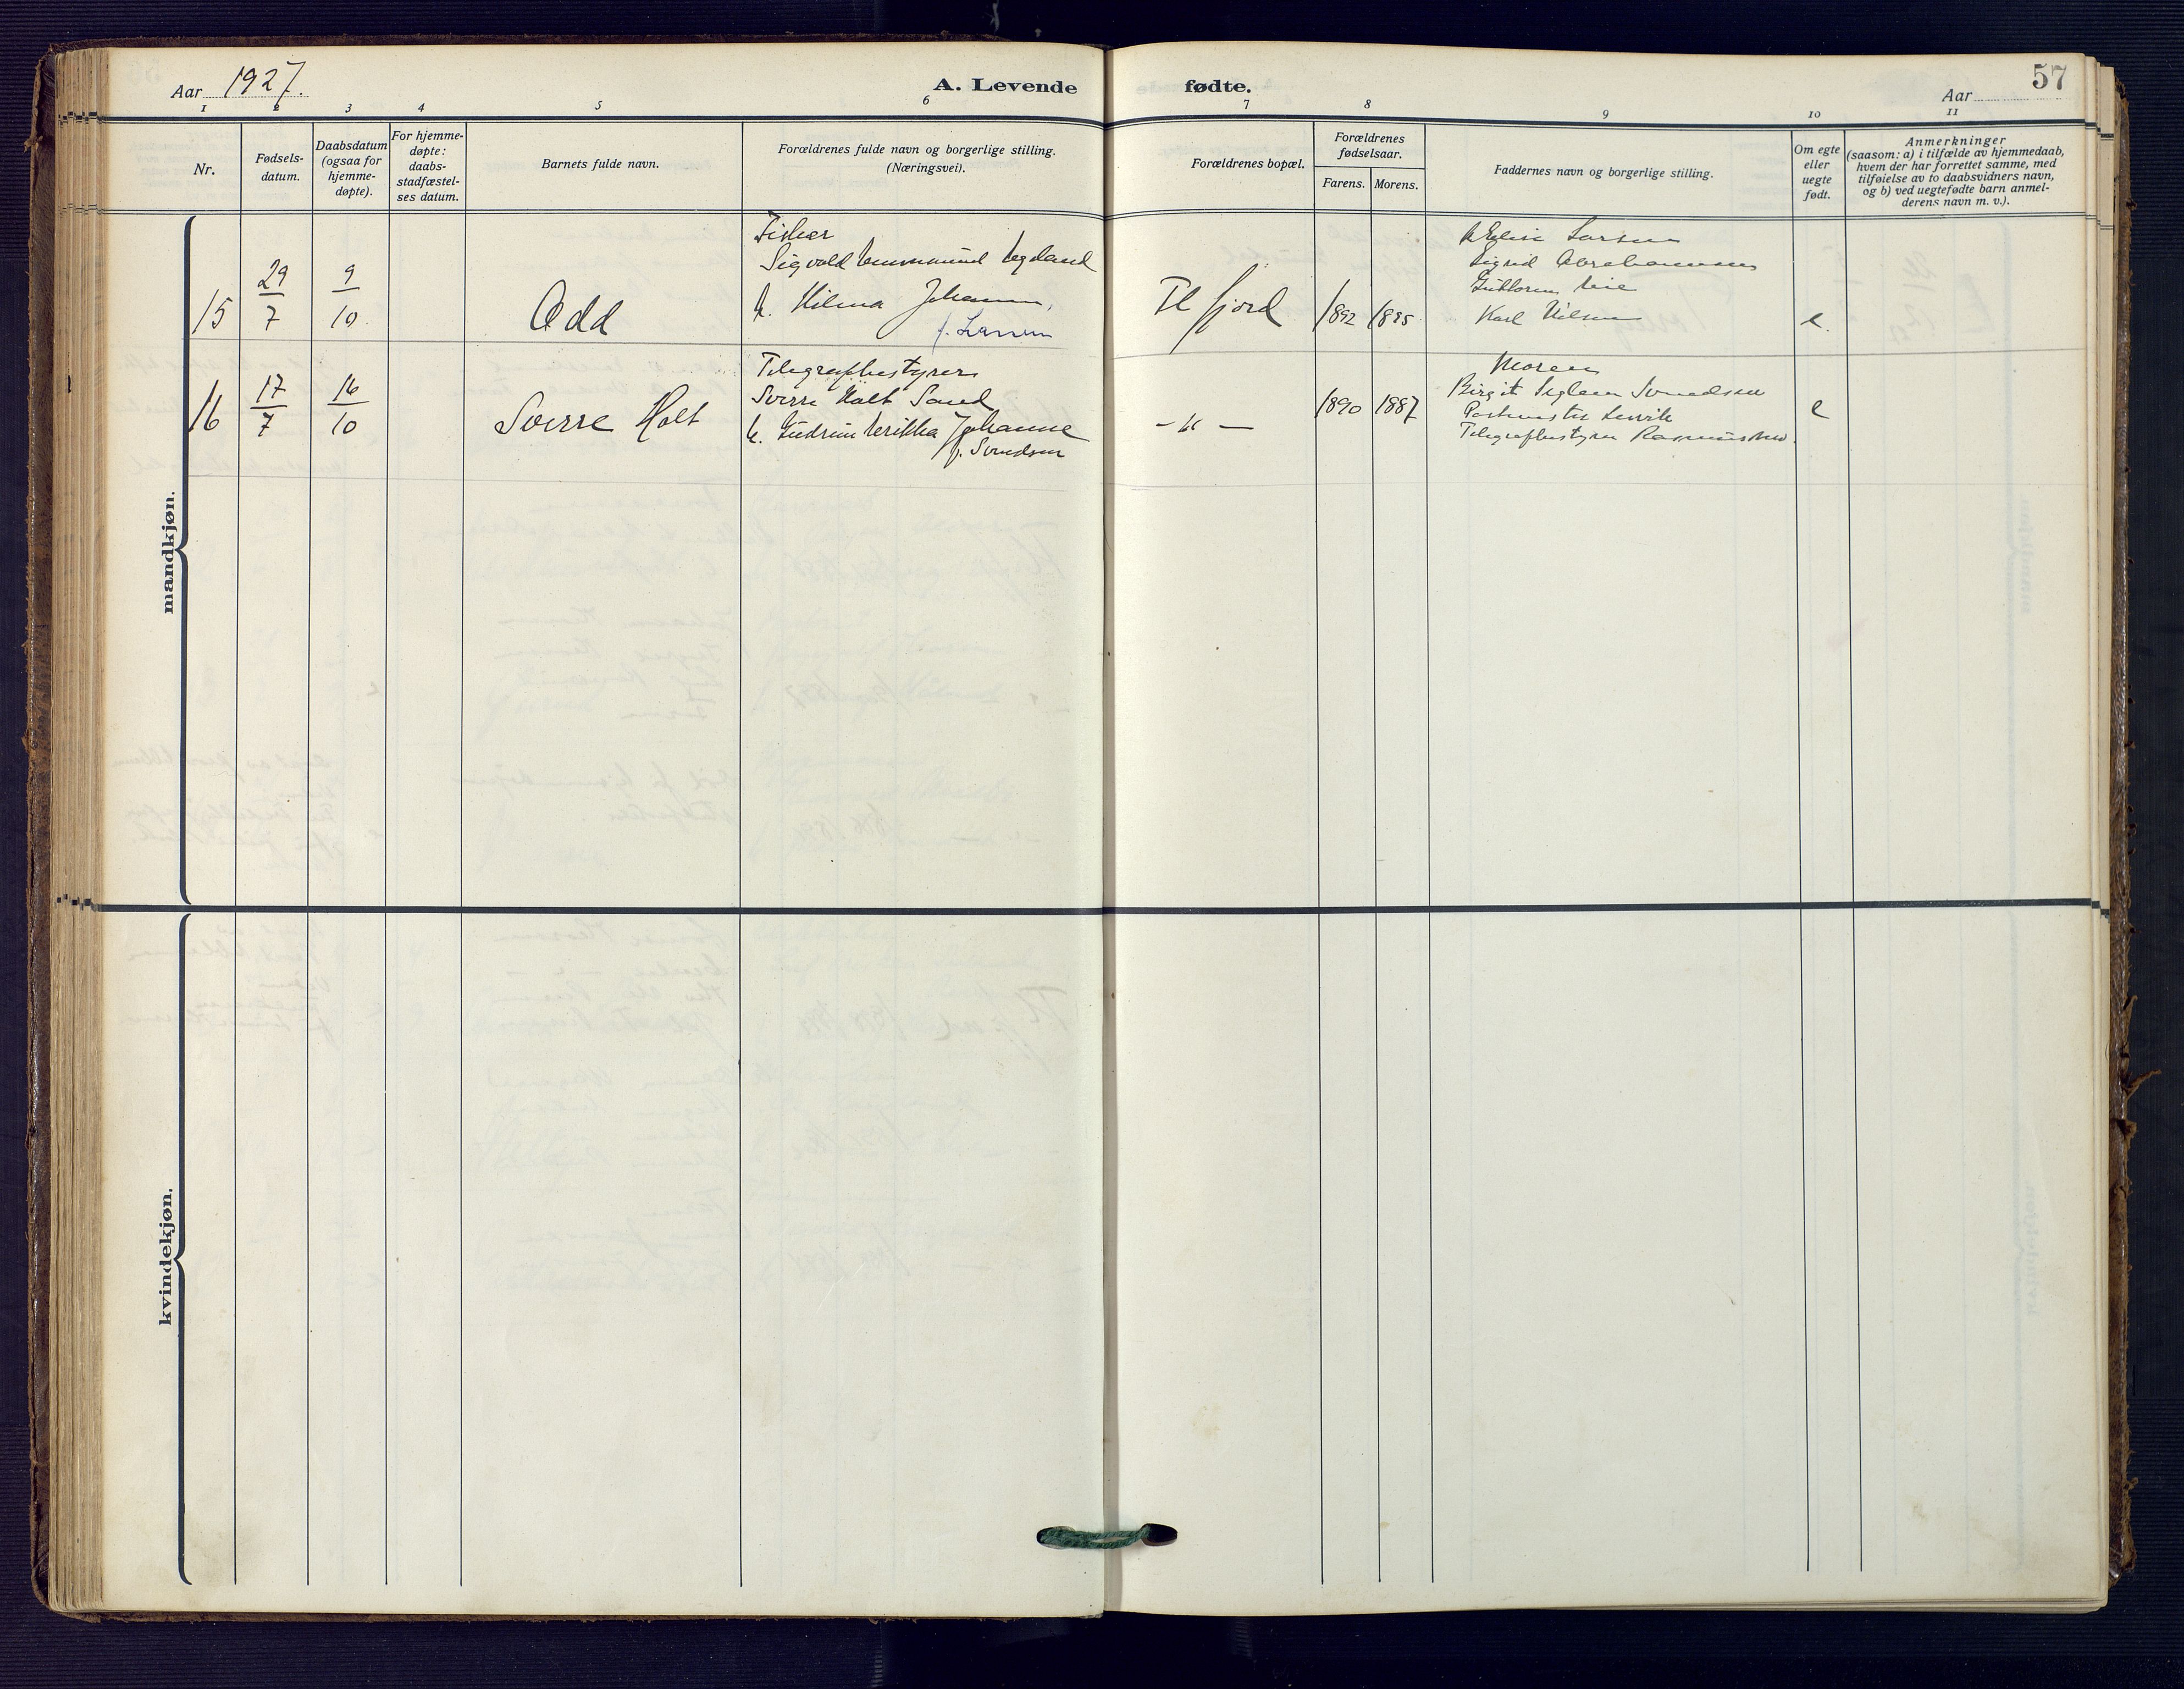 Aar 1927.
A. Levende fødte.
57
Aar
1 2 3 4 5 6 7 8 9 10 11
Nr.
Fødsels-
datum.
Daabsdatum
(ogsaa for
hjemme-
døpte).
For hjemme-
døpte:
daabs-
stadfæstel-
ses datum.
Barnets fulde navn.
Forældrenes fulde navn og borgerlige stilling.
(Næringsvei).
Forældrenes bopæl.
Forældrenes
fødselsaar.
Farens. Morens.
Faddernes navn og borgerlige stilling.
Om egte
eller
uegte
født.
Anmerkninger
(saasom: a) i tilfælde av hjemmedaab,
hvem der har forrettet samme, med
tilføielse av to daabsvidners navn,
og b) ved uegtefødte barn anmel-
derens navn m. v.).
mandkjøn.
15
29/7
9/10
Odd
Fisker
Sigvald
h. Hilma Johanne,
f. Larsen
Fl fjord
1892 1895
Larsen
Sigrid Abrahamsen
Karl Nilsen
e.
16
17/7
16/10
Sverre Holt
Telegrafbestyrer
Sverre Holt Sand
h. Gudrun Johanne
f. Svendsen
-"-
1890 1887
Moren
Birgit Svendsen
Postmester
Telegrafbestyrer Rasmussen.
e
kvindekjøn.